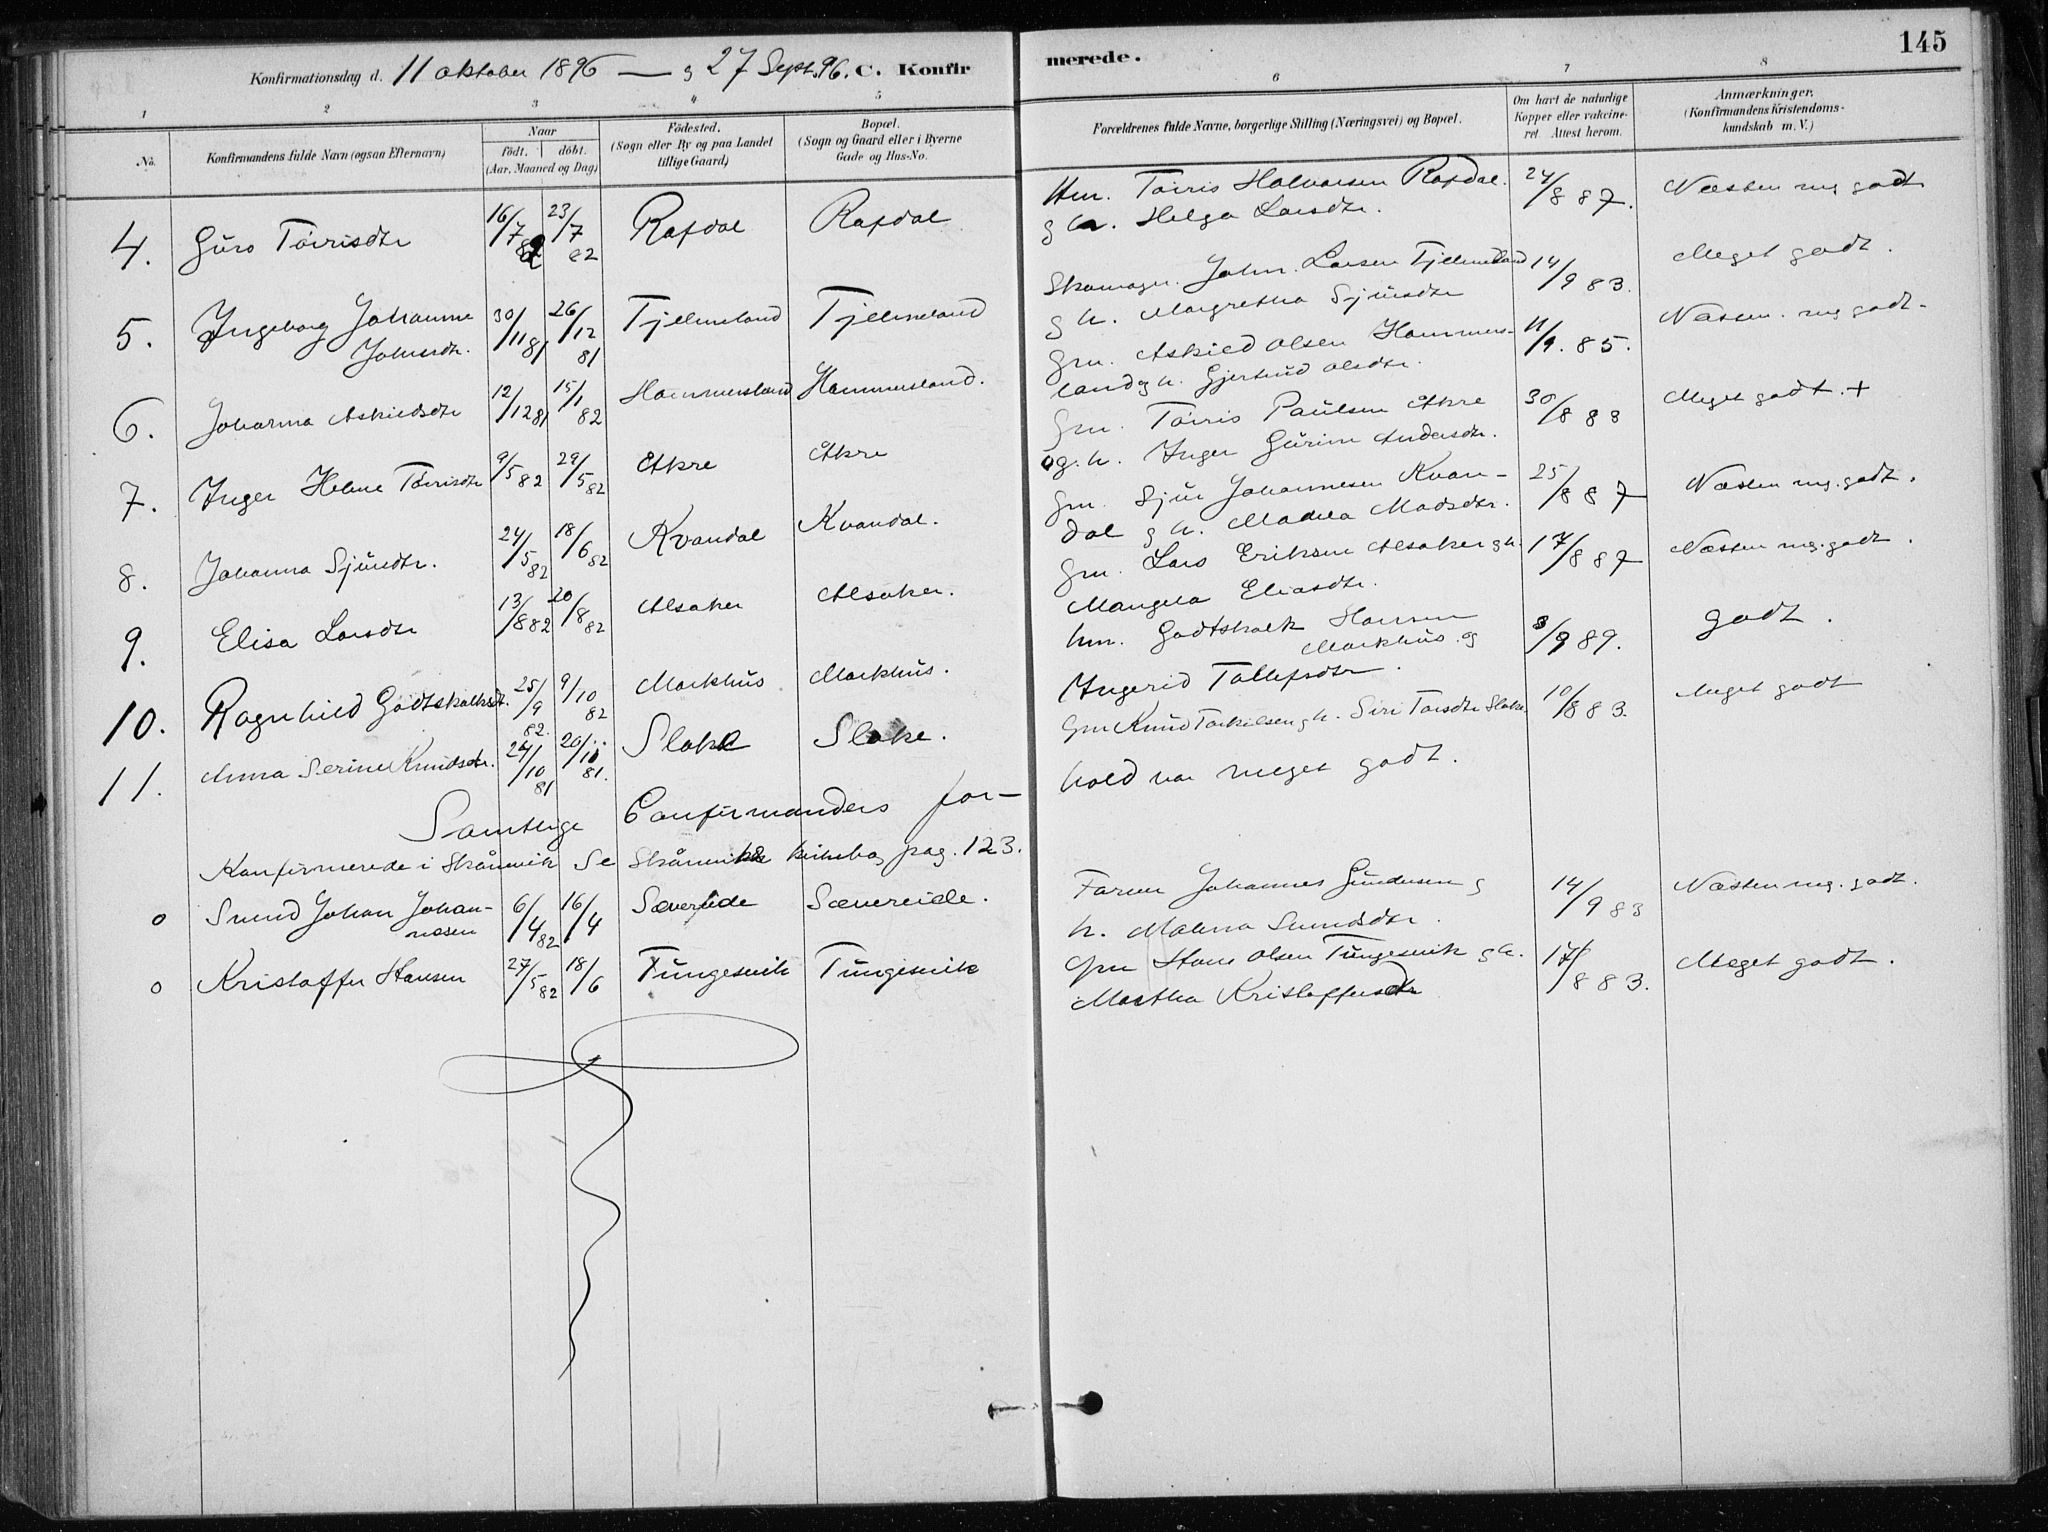 145
Konfirmationsdag d. 11 oktober 1896 — g 27 Sept. 96. C. Konfirmerede.
1 2 3 4 5 6 7 8
No.
Konfirmandens fulde Navn (ogsaa Efternavn)
Naar
födt. döbt.
(Aar, Maaned og Dag)
Födested.
(Sogn eller By og paa Landet
tillige Gaard)
Bopæl.
(Sogn og Gaard eller i Byerne
Gade og Hus-No.
Forældrenes fulde Navne, borgerlige Stilling (Næringsvei) og Bopæl.
Om havt de naturlige
Kopper eller vakcine-
ret Attest herom.
Anmærkninger,
(Konfirmandens Kristendoms-
kundskab m. V.)
4. Guro Tórrisdtr 16/7 82 23/7 82 Rafdal Rafdal Hm. Tórris Halvorsen Rafdal. 24/8 87. Næsten mg godt
g h. Helga Larsdtr.
5. Ingeborg Johanne 30/11 81 26/12 81 Tjelmeland Tjelmeland Skomagr. John Larsen Tjelmeland 14/9 83. Meget godt.
Johnsdtr. g h. Margretha Sjursdtr
6. Johanna Askildsdtr 12/12 81 15/1 82 Hammersland Hammersland. Grm. Askild Olsen Hammers- 11/9. 85. Næsten. mg godt.
land g h. Gjertrud Olsdtr.
7. Inger Helene Tórrisdtr 9/5 82 29/5 82 Akre Akre Grm. Tórris Paulsen Akre 30/8 83 Meget godt. +
og. h. Inger Gurine Andersdtr.
8. Johanna Sjursdtr. 24/5 82 18/6 82 Kvandal Kvandal. Grm. Sjur Johannesen Kvan- 25/8 87 Næsten mg. godt.
dal g h. Madela Madsdtr.
9. Elisa Larsdtr 13/8 82 20/8 82 Alsaker Alsaker. Grm. Lars Eriksen Alsaker g h. 17/8 87 Næsten mg. godt.
Mangela Eliasdtr.
10. Ragnhild Godtskalksdt. 25/9 82. 9/10 82 Markhus Markhus. hm. Godtskalk Hansen 3/9 89. godt.
Markhus. og
Ingerid Tollefsdtr.
11. Anna Serine Knudsdtr. 24/10 81 20/11 81. Slake Slake. Grm Knud Torkilsen g h. Siri Torsdtr Slake. 10/8 83. Meget godt
Samtlige Confirmanders for- hold var meget godt.
Konfirmerede i Skånevik Se Skånevik kirkebog pag. 123.
o Svend Johan Johan- 6/4 82 16/4 Sævereide Sævereide. Farver Johannes Gundersen g 14/9 83 Næsten mg. godt.
nesen h. Malena Svendsdtr.
o Kristoffer Hansen 27/5 82 18/6 Tungesvik Tungesvik Grm Hans Olsen Tungesvik g h. 17/8 83. Meget godt.
Martha Kristoffersdtr